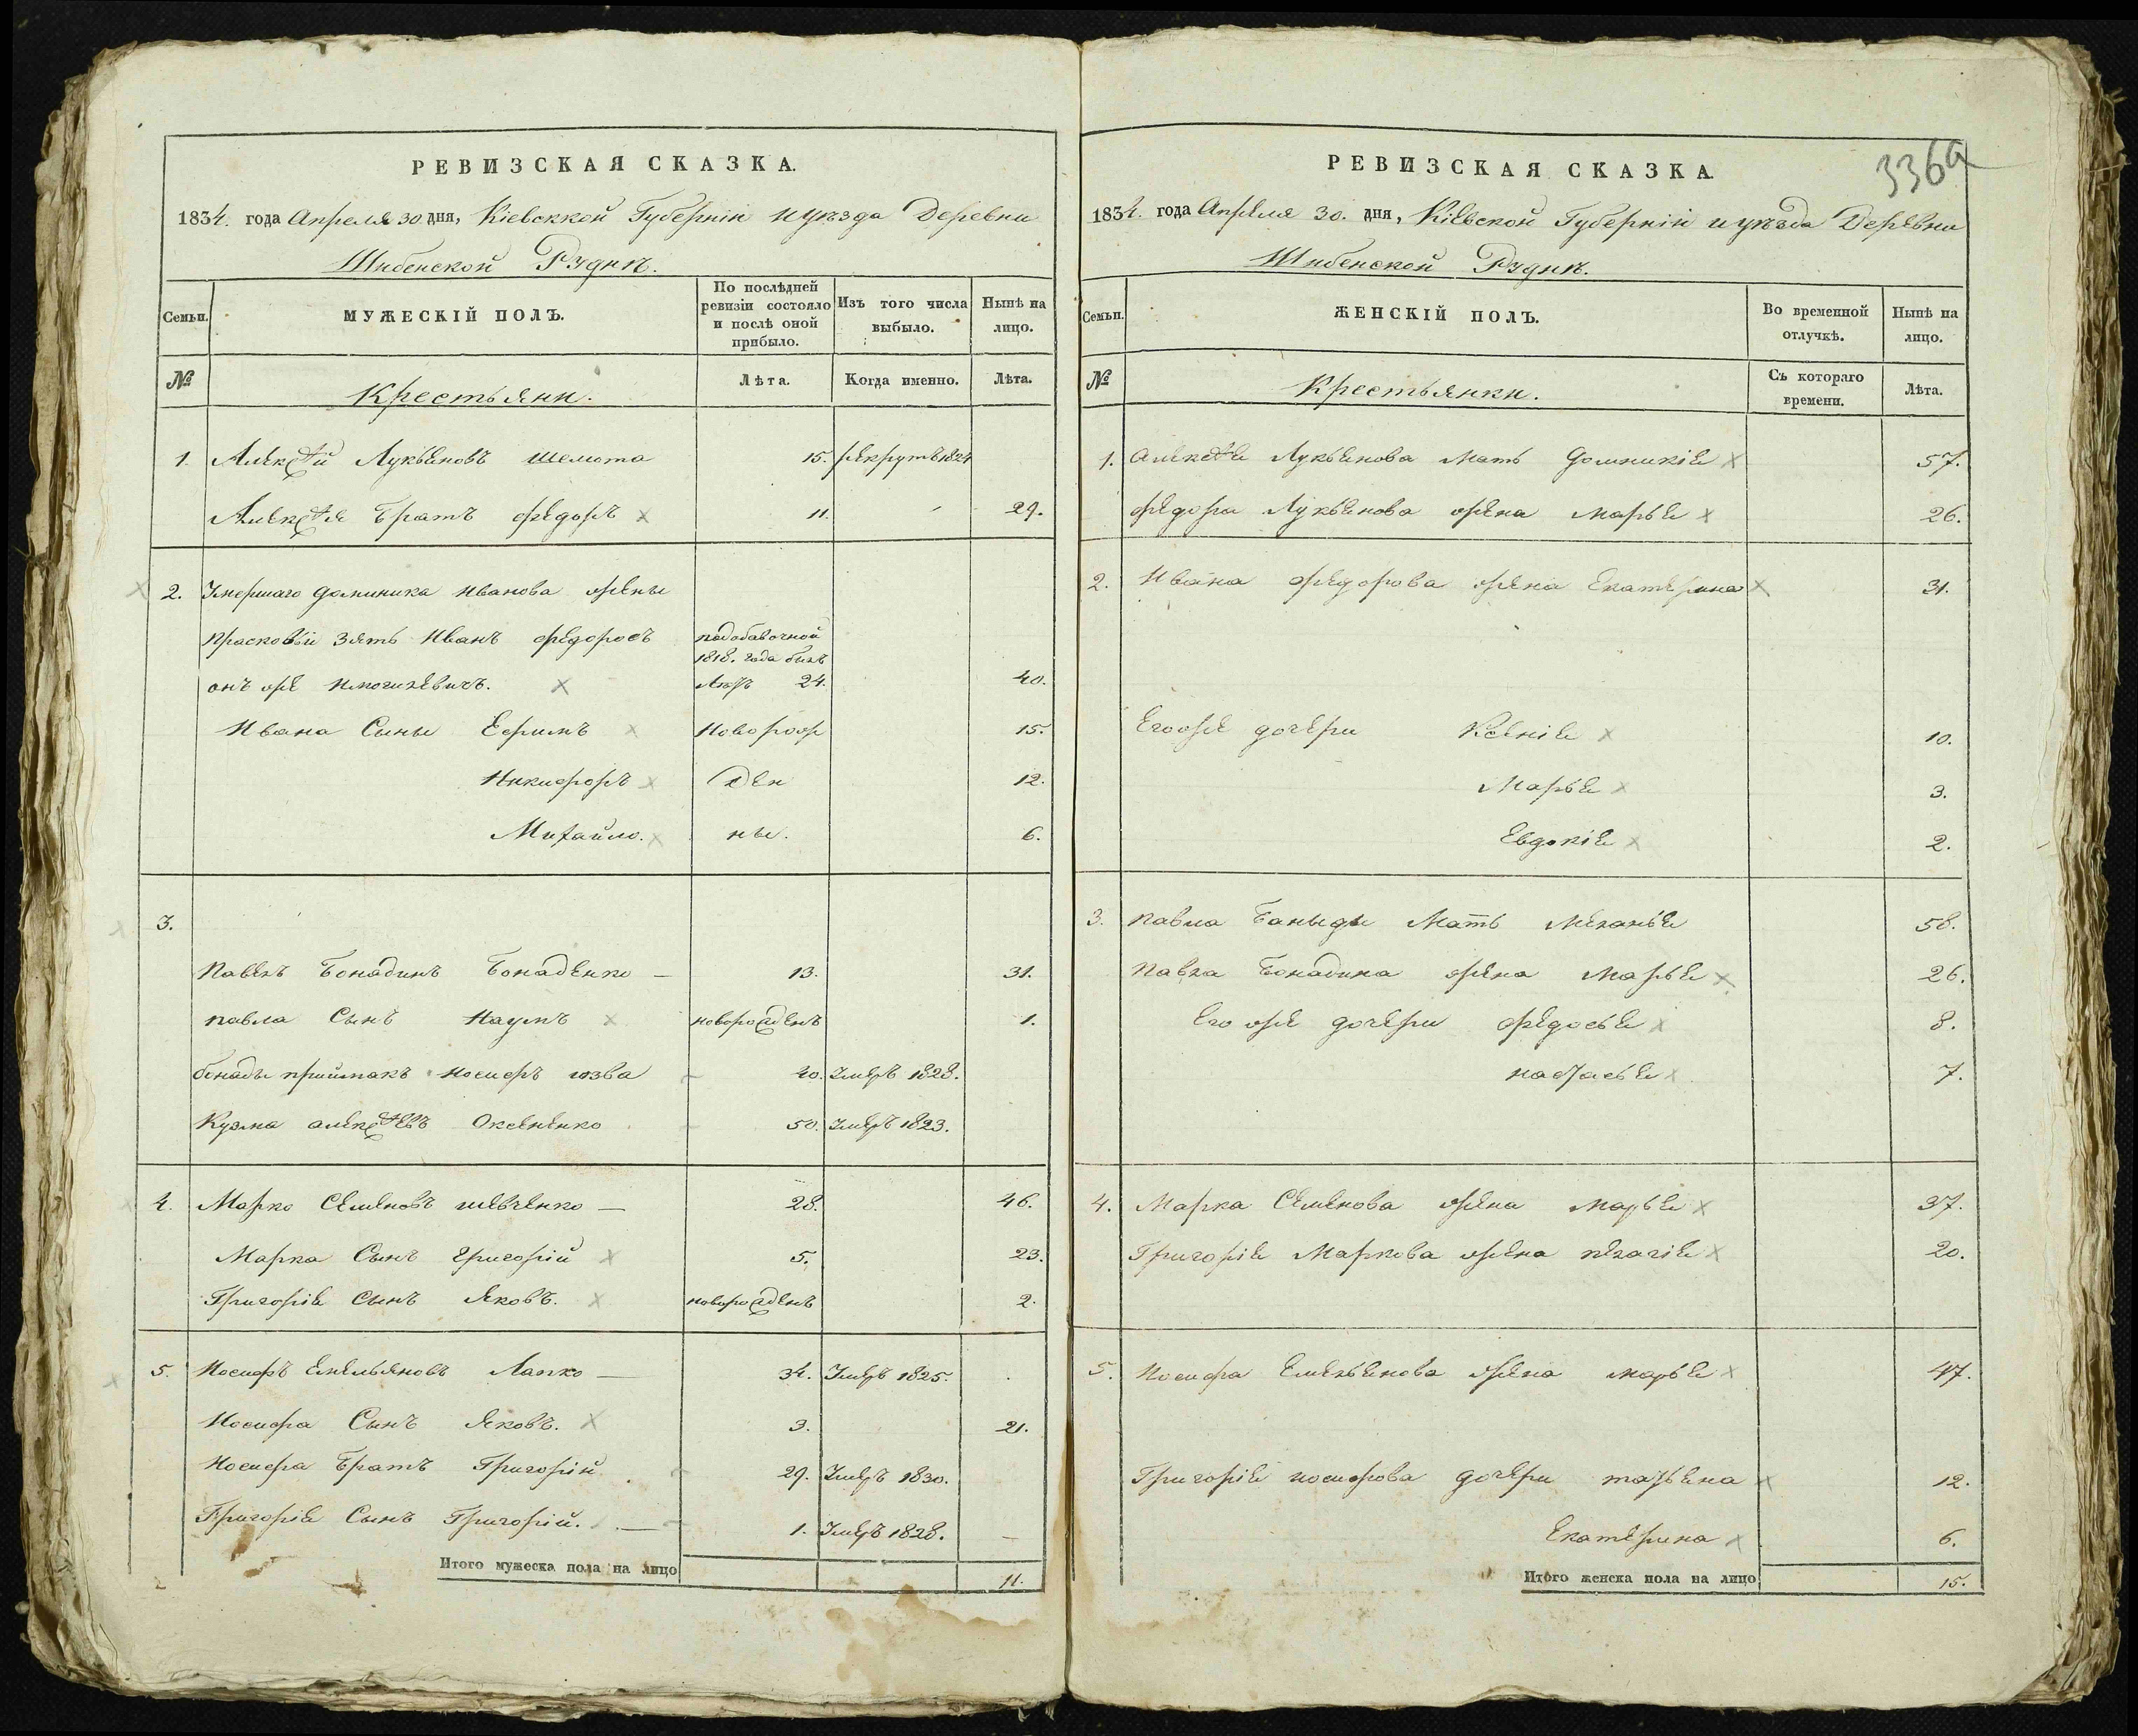 РЕВИЗСКАЯ СКАЗКА.
1834. года Апреля 30 дня, Кіевсккой Губерніи и уезда Деревни
Шибенской Рудни.
Семьи.
МУЖЕСКІЙ ПОЛЪ.
По послѣдней ревизіи состояло и послѣ оной прибыло.
Изъ того числа выбыло.
Нынѣ на лицо.
№
Крестьяни.
Лѣта.
Когда именно.
Лѣта.
1. Алексѣй Лукьяновъ Шемота 15. рекрутъ 1824
Алексѣя Братъ Федоръ 11. 29.
2. Умершаго Доминика Иванова жены
Прасковьи Зять Иванъ Федоровъ по добавочной
1818. года былъ
онъ же Могилевичъ. Лѣтъ 24. 40.
Ивана Сыны Ефимъ Новорож 15.
Никифоръ Ден 12.
Михайло. ны. 6.
3.
Павелъ Бонадинъ Бонаденко 13. 31.
Павла Сынъ Наумъ новорожденъ 1.
Бонады приймакъ Иосифъ 40. Умеръ 1828.
Кузма Алексѣевъ Оксененко 50. Умеръ 1823.
4. Марко Семеновъ Шевченко 28. 46.
Марка Сынъ Григорій 5. 23.
Григорія Сынъ Яковъ. новорожденъ 2.
5. Иосифъ Емельяновъ Лапко 34. Умеръ 1825.
Иосифа Сынъ Яковъ. 3. 21.
Иосифа Братъ Григорій 29. Умеръ 1830.
Григорія Сынъ Григорій. 1. Умеръ 1828.
Итого мужеска пола на лицо 11.
336а
РЕВИЗСКАЯ СКАЗКА.
1834. года Апреля 30. дня, Кіевской Губерніи и уезда Деревни
Шибенской Рудни.
Семьи.
ЖЕНСКІЙ ПОЛЪ.
Во временной отлучкѣ.
Нынѣ на лицо.
№
Крестьянки.
Съ котораго времени.
Лѣта.
1. Алексѣя Лукьянова Мать Домникія 57.
Федора Лукьянова жена Марья 26.
2. Ивана Федорова жена Екатерина 31.
Его же дочери Ксенія 10.
Марья 3.
Евдокія 2.
3. Павла Мать Меланья 58.
Павла Бонадина жена Марья 26.
Его же дочери Федосья 8.
настасья 7.
4. Марка Семенова жена Марья 37.
Григорія Маркова жена пелагія 20.
5. Иосифа Емельянова жена марья 47.
Григорія иосифова дочери татьяна 12.
Екатерина 6.
Итого женска пола на лицо 15.